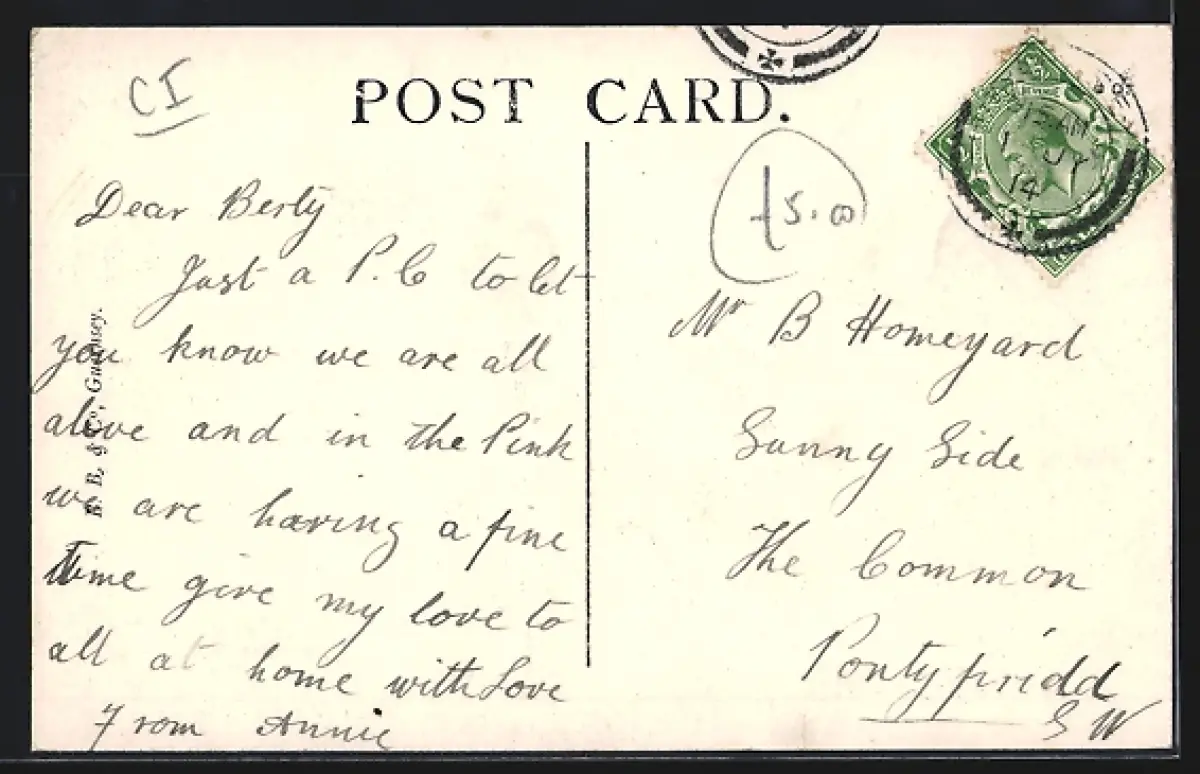 CI
POST CARD.
Dear Berty
Just a P.C to let
you know we are all
alive and in the Pink
we are having a fine
time give my love to
all at home with Love
From Annie
£5.00
Mr B Homeyard
Sunny Side
The Common
Pontypridd
S W
& Co, Guernsey.
12 AM
1 JY
14